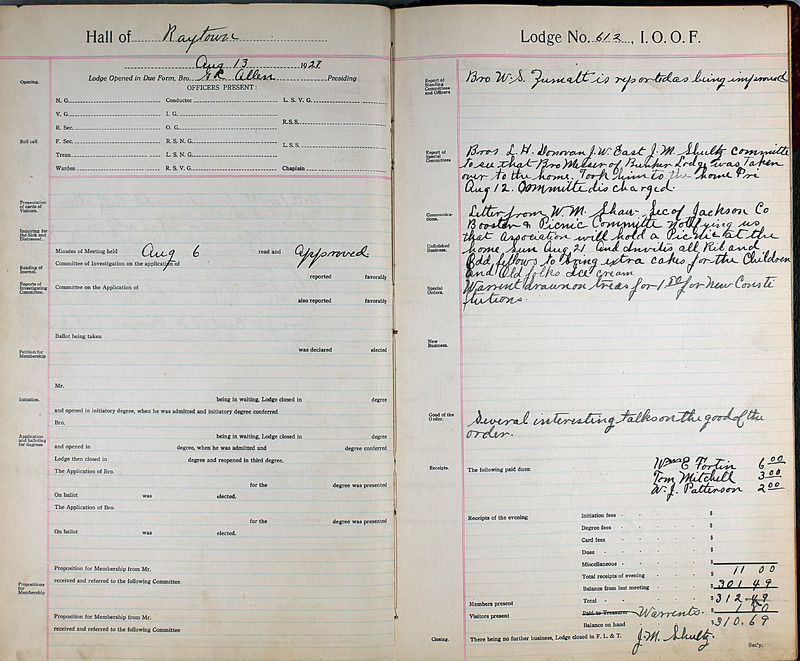 Hall of Raytown
Aug 13 1927
Opening.
Lodge Opened in Due Form, Bro. G.R. Allen Presiding
OFFICERS PRESENT:
N. G. Conductor L. S. V. G.
V. G. I. G.
R. Sec. O. G. R.S.S.
Roll call.
F. Sec. R. S. N. G. L. S. S.
Treas. L. S. N. G.
Warden R. S. V. G. Chaplain
Presentation of cards of Visitors.
Inquiring for the Sick and Distressed.
Minutes of Meeting held Aug 6 read and approved
Reading of Journal.
Committee of Investigation on the application of
reported favorably
Reports of Investigating Committee.
Committee on the Application of
also reported favorably
Ballot being taken
was declared elected
Petition for Membership
Mr.
Initiation.
being in waiting, Lodge closed in degree
and opened in initiatory degree, when he was admitted and initiatory degree conferred
Bro.
Application and balloting for degrees
being in waiting, Lodge closed in degree
and opened in degree, when he was admitted and degree conferred
Lodge then closed in degree and reopened in third degree.
The Application of Bro.
for the degree was presented
On ballot was elected.
The Application of Bro.
for the degree was presented
On ballot was elected.
Proposition for Membership from Mr.
received and referred to the following Committee
Propositions for Membership
Proposition for Membership from Mr.
received and referred to the following Committee
Lodge No. 613, I. O. O. F.
Report of Standing Committees and Officers
Bro W.S. Zumalt is reported as being improved
Report of Special Committees
Bros L.H. Donovan J.W. East J.M. Shultz Committe
to see that Bro Melser of Bunker Lodge was Taken
over to the home. Took him to the home Fri
Aug 12. Committe discharged.
Communications.
Letter from W.M. Shaw. Sec of Jackson Co
Booster & Picnic Committe notifying us
that association will hold a Picnic at the
Unfinished Business.
home Sun Aug 21 and invites all Reb and
Odd fellows to bring extra cakes for the Children
and Old folks Ice cream
Special Orders.
Warrent drawn on treas for 1.80 for New Consti
tutions.
New Business.
Good of the Order.
Several interesting talks on the good of the
order.
Receipts.
The following paid dues:
Wm E Fortin 6 00
Tom Mitchell 3 00
W. J. Patterson 2 00
Receipts of the evening
Initiation fees $
Degree fees $
Card fees $
Dues $
Miscellaneous $
Total receipts of evening 11 00
Balance from last meeting $301 49
Members present
Total $312.49
Visitors present
Paid to Treasurer Warrents. $1 80
Balance on hand $310.69
Closing.
There being no further business, Lodge closed in F. L. & T.
J.M. Shultz. Sec'y.